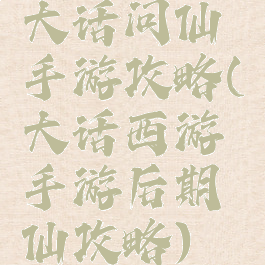 大话问仙
手游攻略(
大话西游
手游后期
仙攻略)